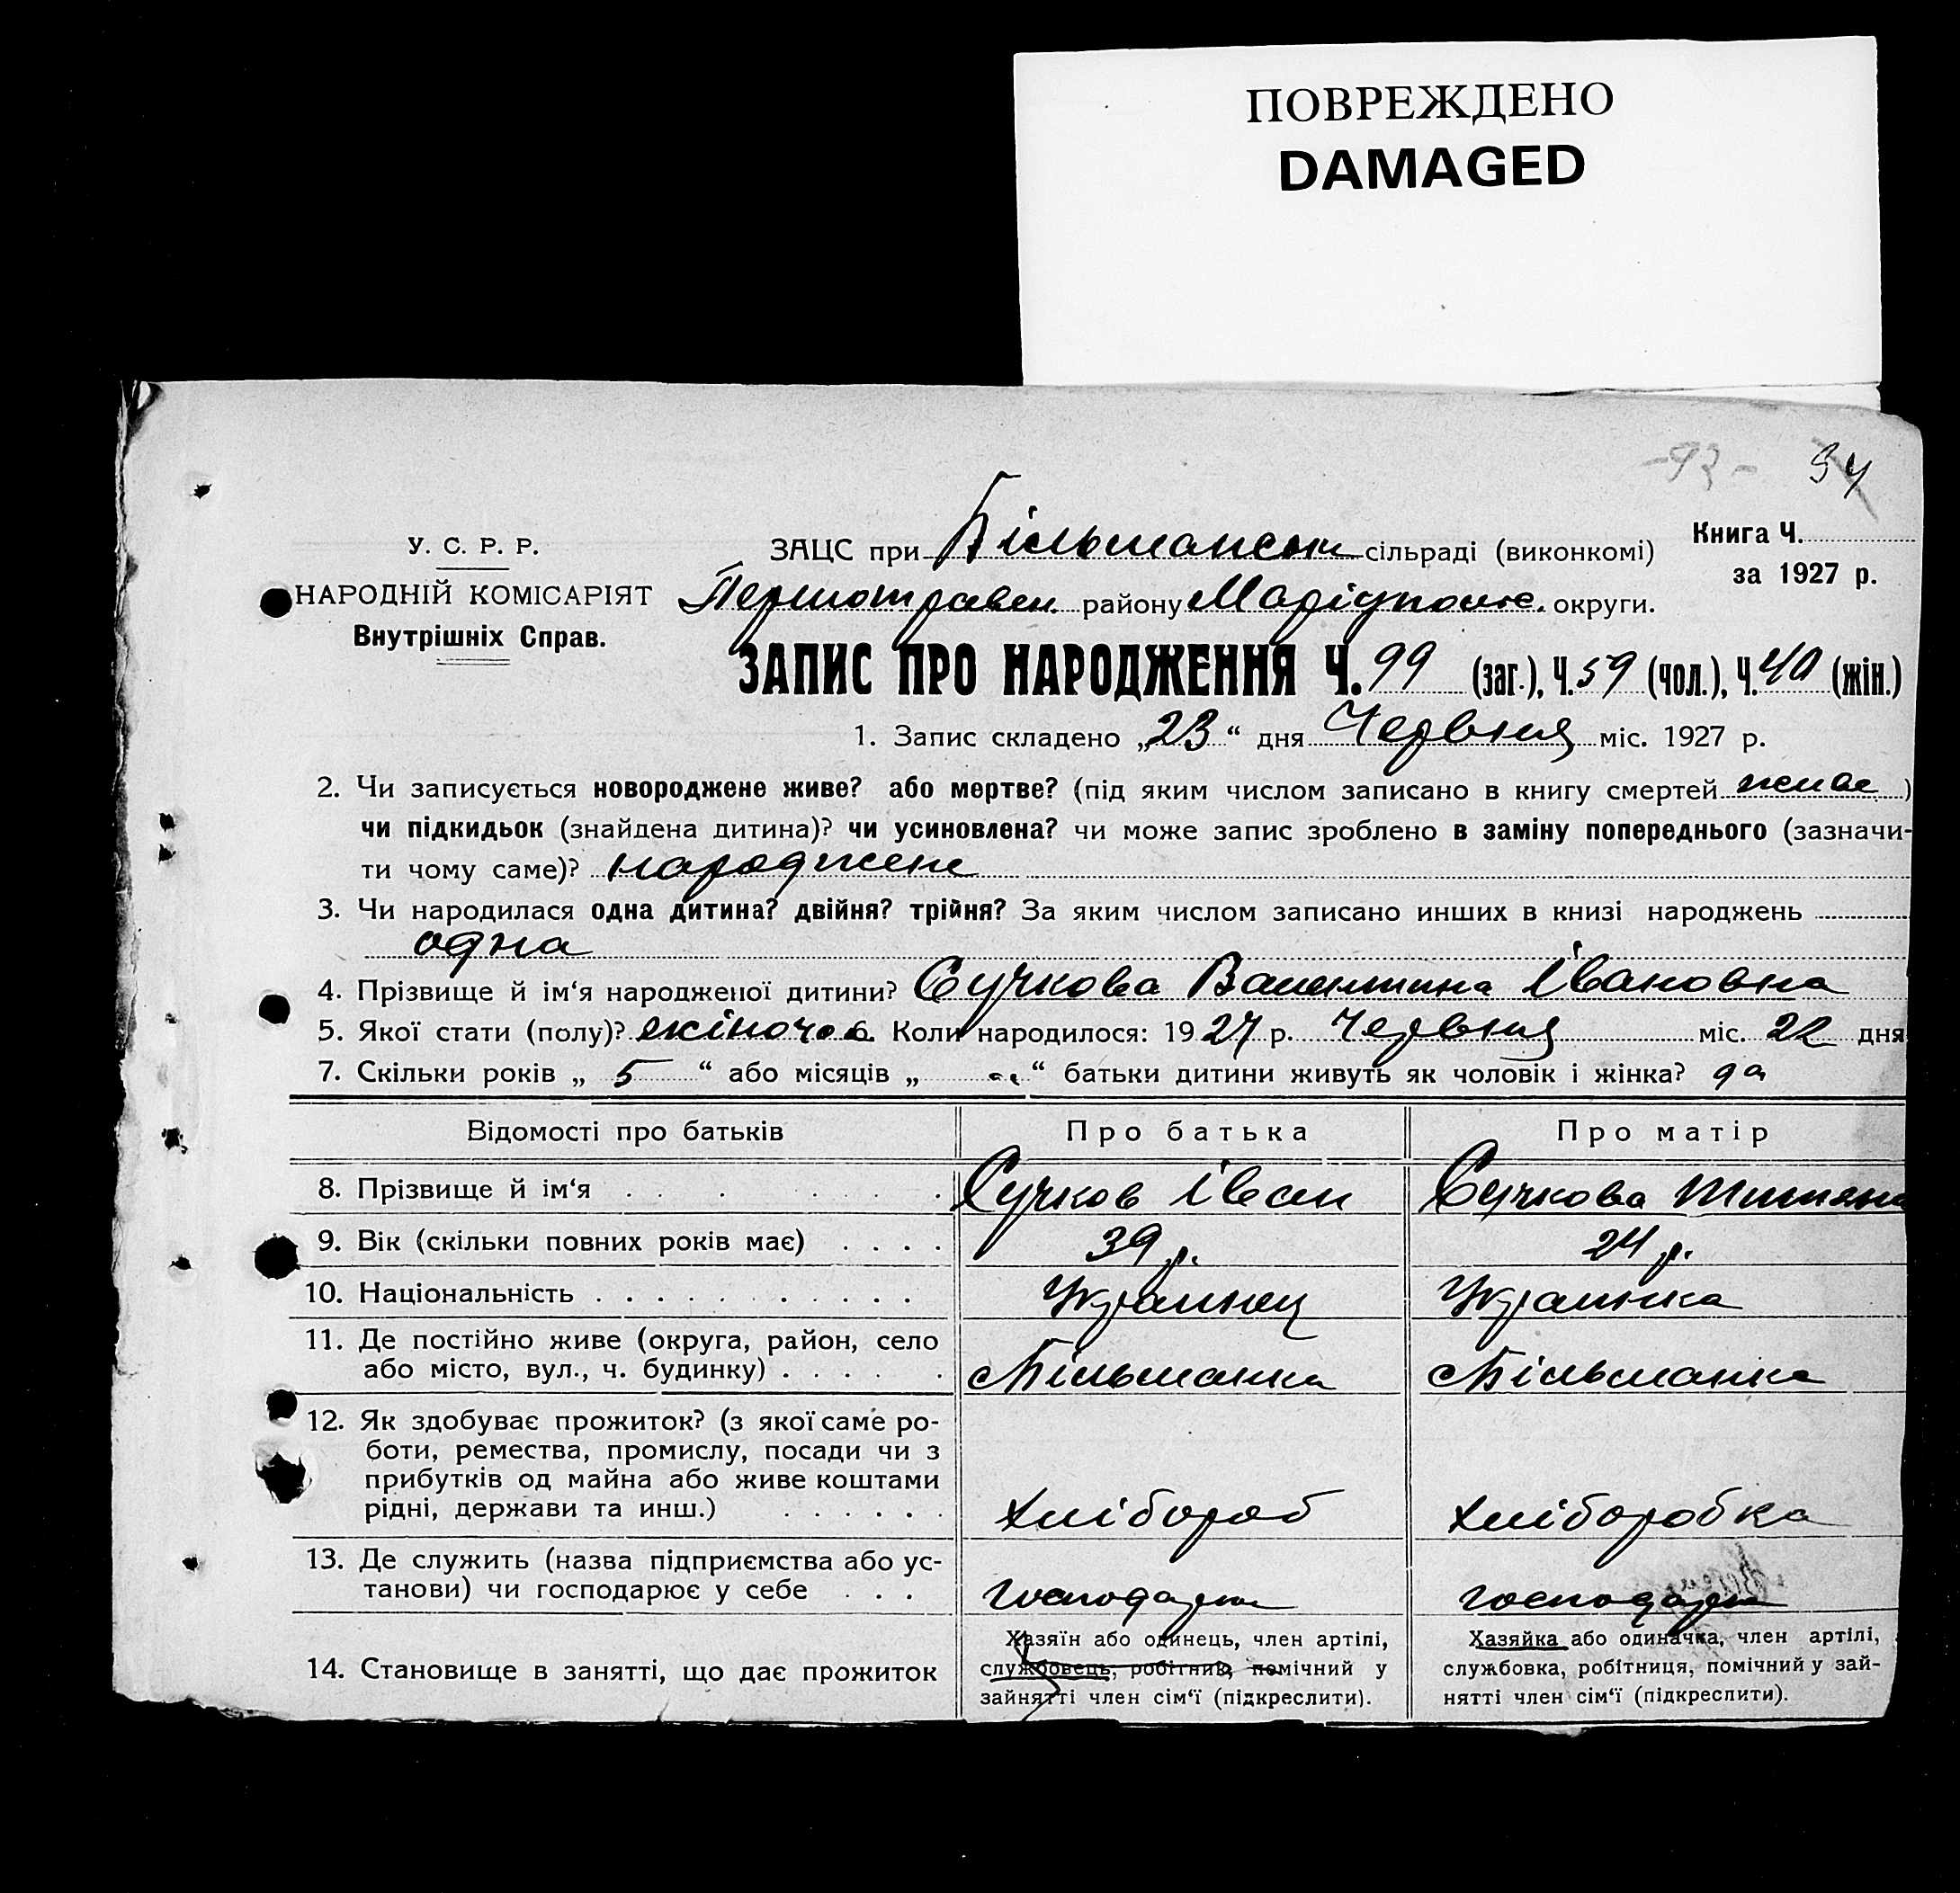 ПОВРЕЖДЕНО
DAMAGED
-93- 94
У. С. Р. Р.
НАРОДНІЙ КОМІСАРІЯТ
Внутрішніх Справ.
ЗАЦС при Більманськ сільраді (виконкомі)
Книга Ч.
за 1927 р.
Першотравен. району Маріупольс. округи.
ЗАПИС ПРО НАРОДЖЕННЯ Ч. 99 (заг.), Ч. 59 (чол.), Ч. 40 (жін.)
1. Запис складено „23“ дня Червня міс. 1927 р.
2. Чи записується новороджене живе? або мертве? (під яким числом записано в книгу смертей живе )
чи підкидьок (знайдена дитина)? чи усиновлена? чи може запис зроблено в заміну попереднього (зазначи-
ти чому саме)? народжене
3. Чи народилася одна дитина? двійня? трійня? За яким числом записано инших в книзі народжень
одна
4. Прізвище й ім‘я народженої дитини? Сучкова Валентина Івановна
5. Якої стати (полу)? жіночоі 6. Коли народилося: 1927 р. Червня міс. 22 дня
7. Скільки років „ 5 “ або місяців „ “ батьки дитини живуть як чоловік і жінка? да
Відомості про батьків Про батька Про матір
8. Прізвище й ім‘я Сучков Іван Сучкова Титяна
9. Вік (скільки повних років має) 39 р. 24 р.
10. Національність Украинец Украинка
11. Де постійно живе (округа, район, село
або місто, вул., ч. будинку) Більманка Більманка
12. Як здобуває прожиток? (з якої саме ро-
боти, ремества, промислу, посади чи з
прибутків од майна або живе коштами
рідні, держави та инш.) Хлібороб Хліборобка
13. Де служить (назва підприємства або ус-
танови) чи господарює у себе господарює господарює
14. Становище в занятті, що дає прожиток
Хазяїн або одинець, член артілі,
службовець, робітник, помічний у
зайнятті член сім‘ї (підкреслити).
Хазяйка або одиначка, член артілі,
службовка, робітниця, помічний у зай-
нятті член сім‘ї (підкреслити).